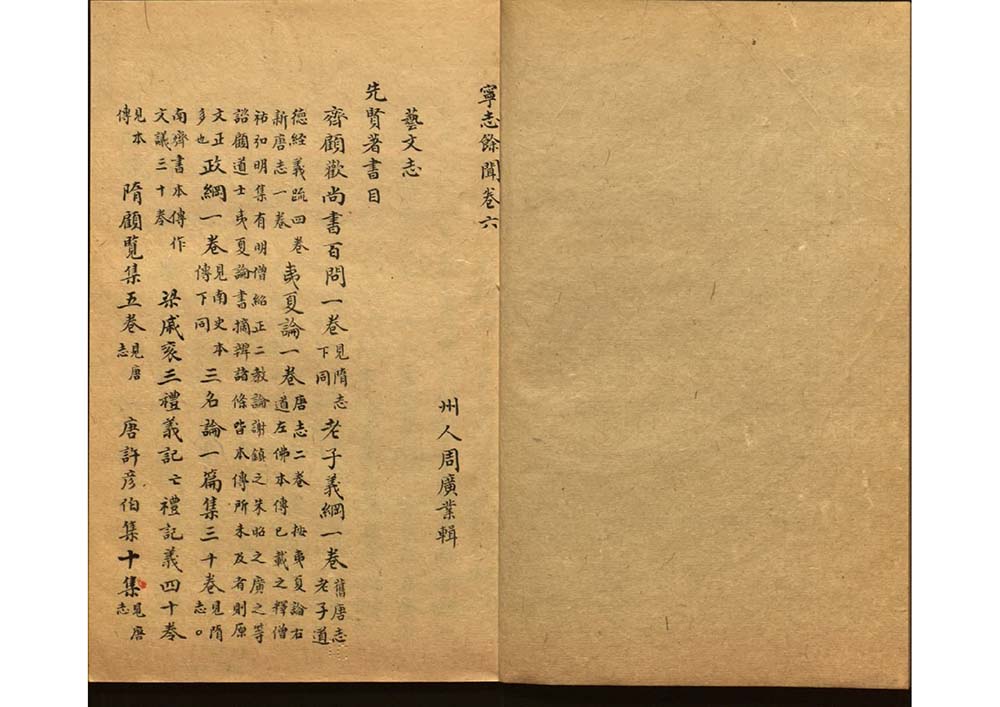 寧志餘聞卷六
州人周廣業輯
藝文志
先賢著書目
齊顧歡尚書百問一卷見隋志下同老子義綱一卷舊唐志老子道
德經義疏四卷新唐志一卷夷夏論一卷唐志二卷 按夷夏論右道左佛本傳已載之釋僧
祐弘明集有明僧紹正二教論謝鎮之朱昭之廣之等諮顧道士夷夏論書摘辯諸條皆本傳所未及者則原
文正多也政綱一卷見南史本傳下同三名論一篇集三十卷見隋志。
南齊書本傳作文議三十卷 梁戚衮三禮義記亡禮記義四十卷
見本傳 隋顧覽集五卷見唐志 唐許彦伯集十集見唐志